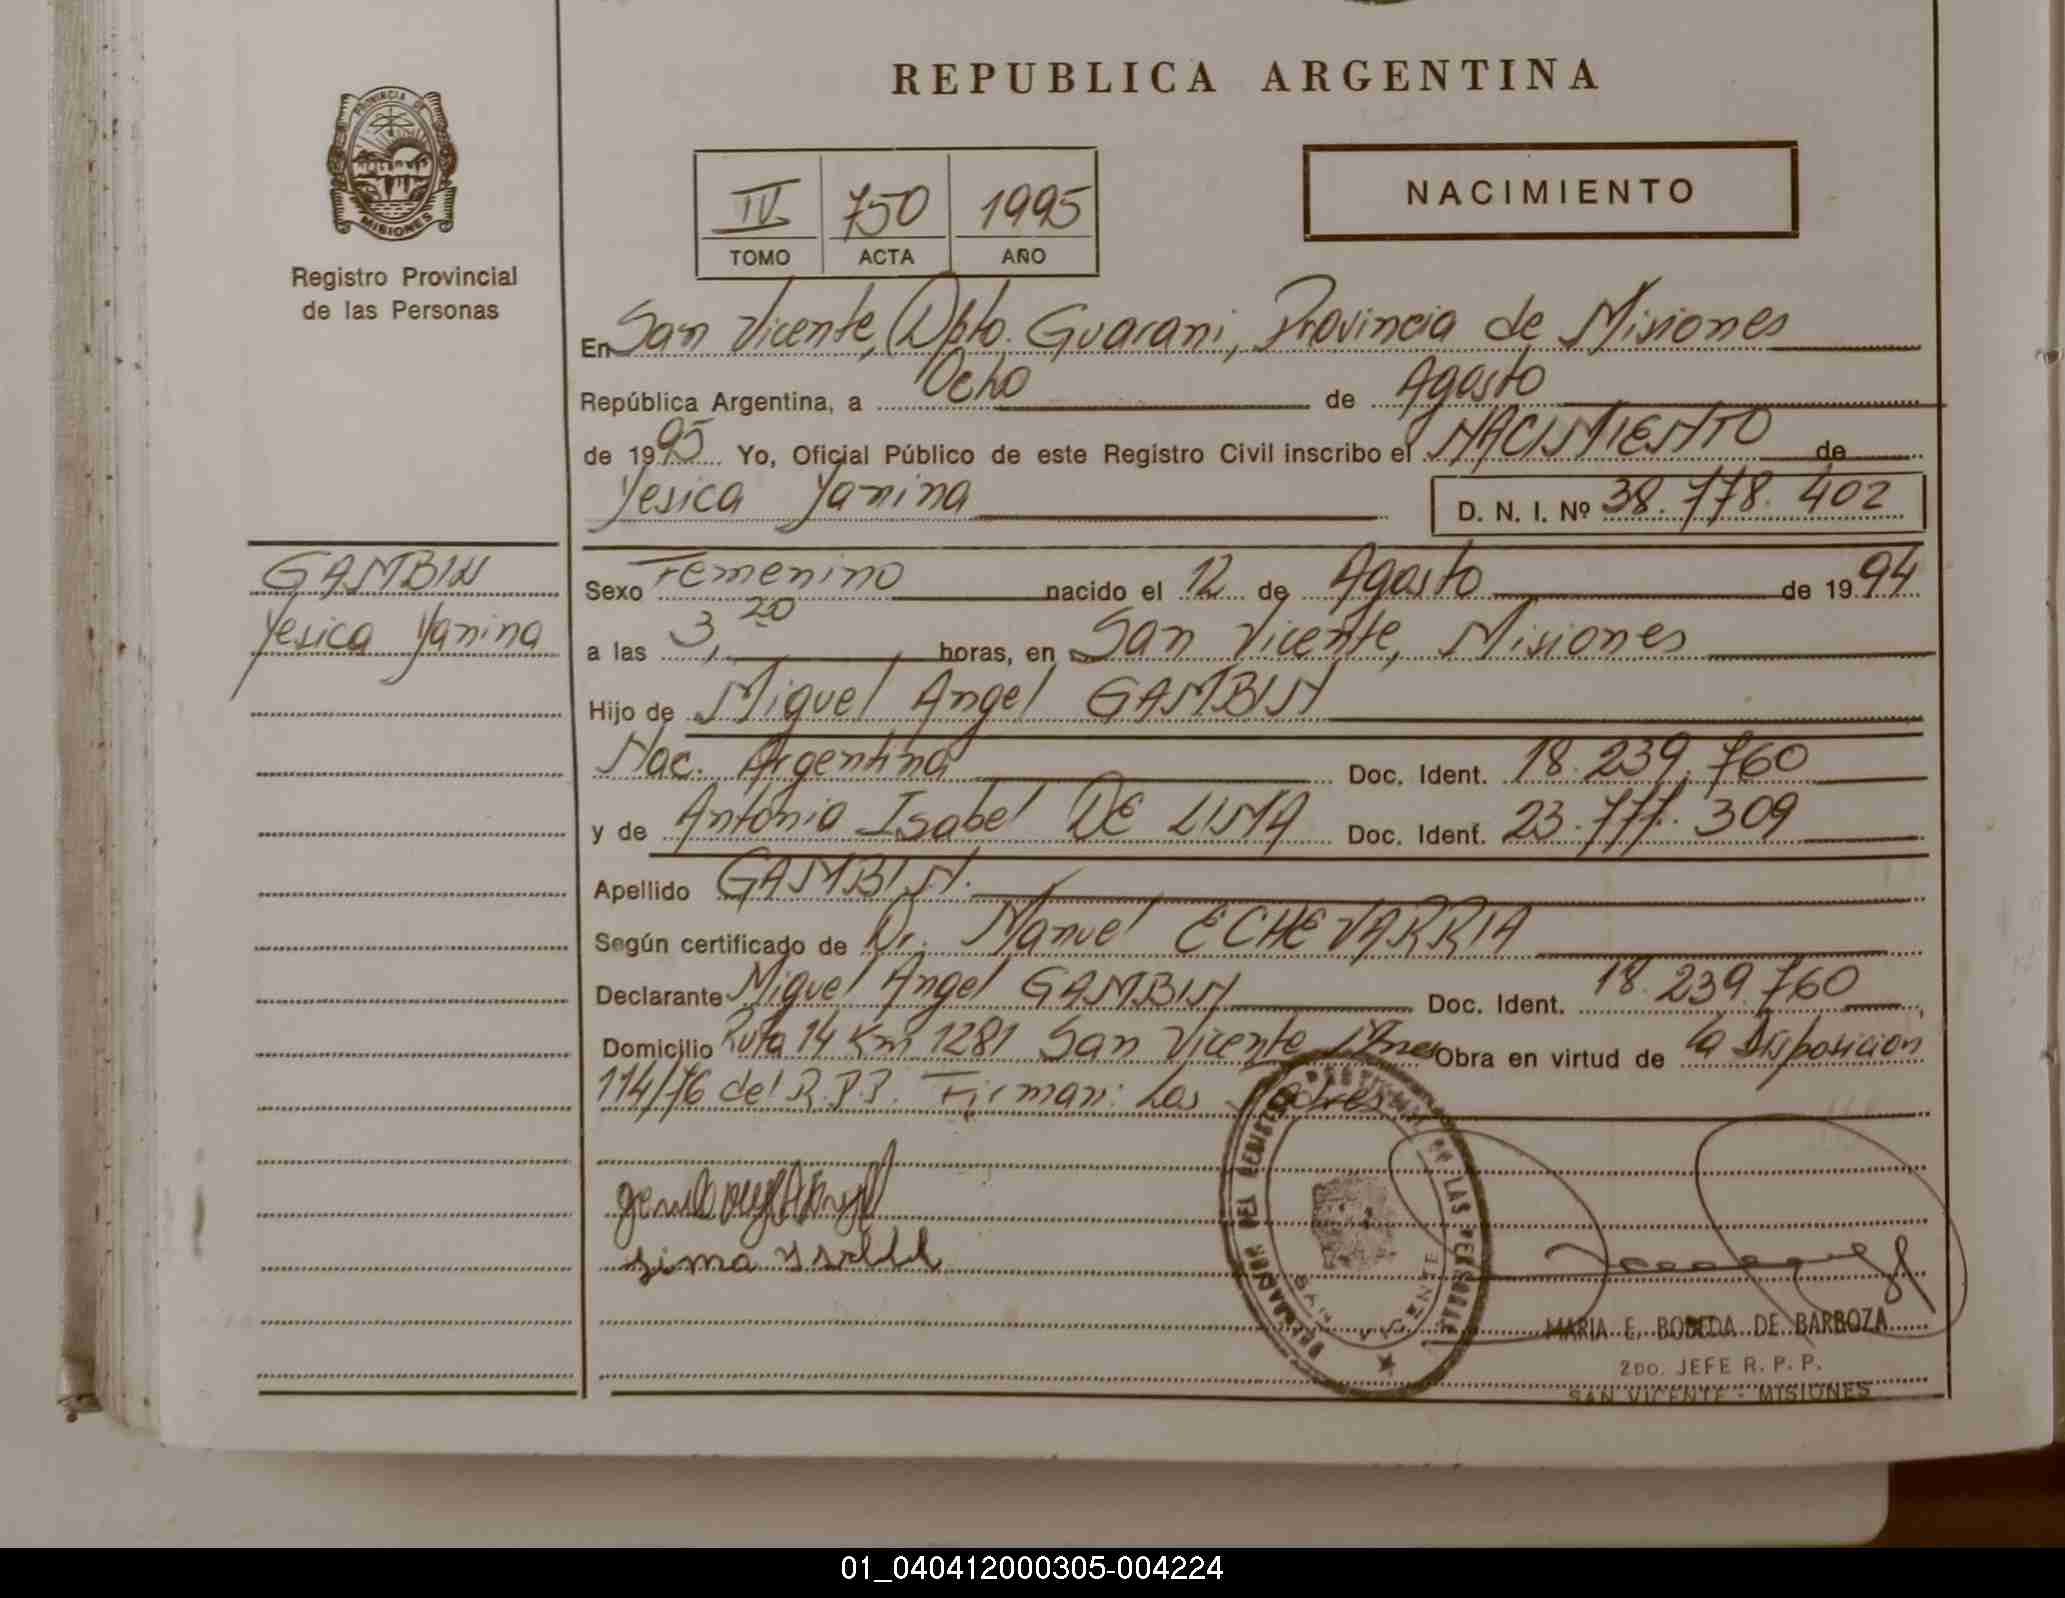 REPUBLICA ARGENTINA
PROVINCIA DE
MISIONES
Registro Provincial
de las Personas
IV 750 1995
TOMO ACTA AÑO
NACIMIENTO
En San Vicente, Dpto. Guarani, Provincia de Misiones
República Argentina, a Ocho de Agosto
de 1995 Yo, Oficial Público de este Registro Civil inscribo el NACIMIENTO de
Yesica Yanina D. N. I. Nº 38.778.402
GAMBIN
Yesica Yanina
Sexo Femenino nacido el 12 de Agosto de 1994
a las 3,20 horas, en San Vicente, Misiones
Hijo de Miguel Angel GAMBIN
Nac. Argentina Doc. Ident. 18.239.760
y de Antonia Isabel DE LIMA Doc. Ident. 23.777.309
Apellido GAMBIN.
Según certificado de Dr. Manuel ECHEVARRIA
Declarante Miguel Angel GAMBIN Doc. Ident. 18.239.760
Domicilio Ruta 14 Km 1281 San Vicente Mnes Obra en virtud de la Disposicion
114/76 del R.P.P. Firman: Los Padres
DELEGACION DEL REGISTRO PROVINCIAL DE LAS PERSONAS
SAN VICENTE
MARIA E. BOBEDA DE BARBOZA
2DO. JEFE R. P. P.
SAN VICENTE - MISIONES
01_040412000305-004224